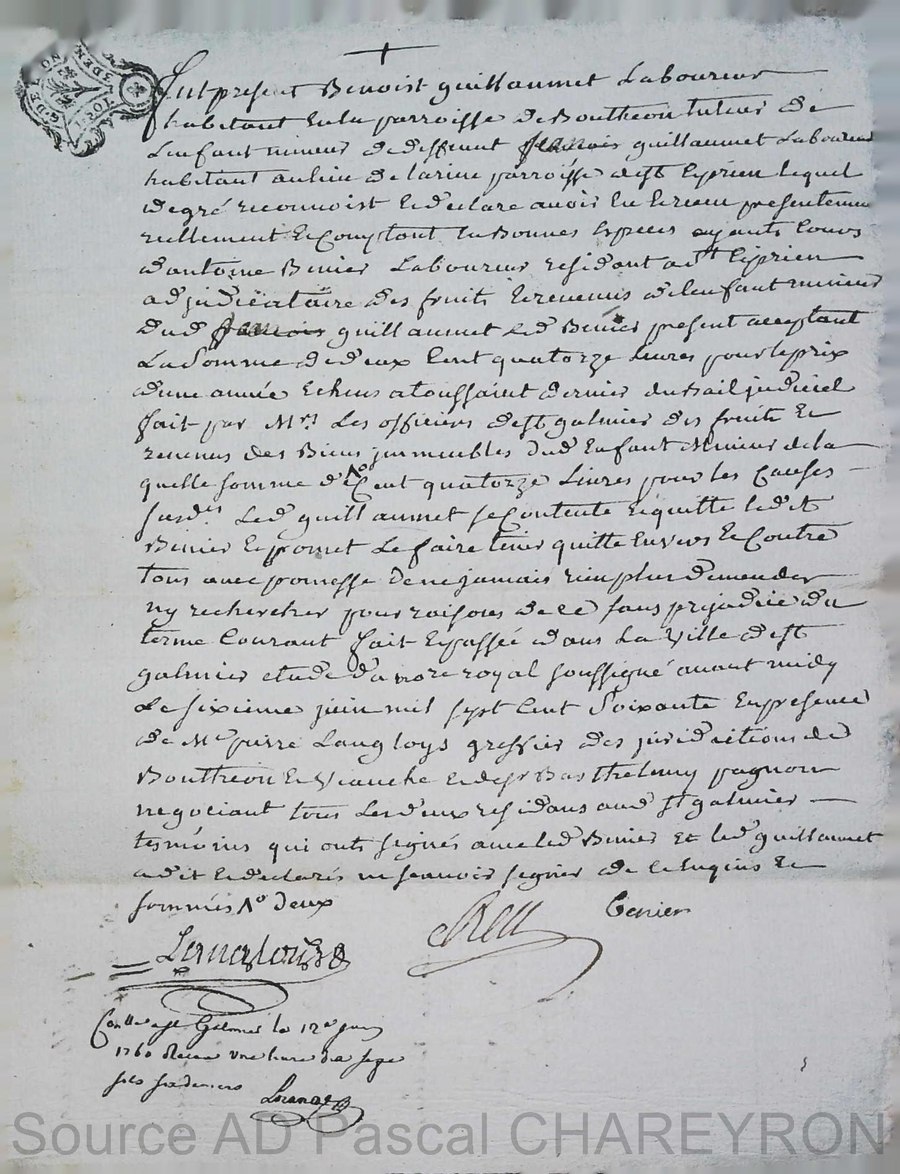 Fut present Benoist guillaumet Laboureur
habitant en la parroisse de Bouthreon tuteur de
Lenfant mineur de deffunt francois guillaumet Laboureur
habitant au lieu de larine parroisse de st Ciprien lequel
de gré reconnoist et declare avoir eu et receu presentement
reellement et comptant en Bonnes Especes ayants cours
dantoine Benier Laboureur residant a st Ciprien
adjudicataire des fruits et revenus de lenfant mineur
dud francois guillaumet led Benier present acceptant
La somme de deux Cent quatorze Livres pour le prix
dune année Echeue a toussaint dernier du Bail judiciel
fait par Mrs Les officiers de st galmier des fruits et
revenus des Biens jmmeubles dud Enfant Mineur de la
quelle somme de Λo Cent quatorze Livres pour les Causes
susd. Led guillaumet se Contente et quitte led
Benier et promet Le faire tenir quitte Envers et Contre
tous avec promesse de ne jamais rien plus demender
ny rechercher pour raisons de ce sans prejudice du
terme Courant fait et passée dans La Ville de st
galmier etude du nore royal soussigné avant midy
Le sixieme juin mil sept Cent soixante En presence
de Me pierre Langloys greffier des juridictions de
Bouthreon et Veauche et de sr Barthelemy pagnon
negociant tous Les deux residans aud st galmier
tesmoins qui onts signés avec led Benier et led guillaumet
a dit et declarés ne scavoir signer de ce Enquis et
sommés Λo deux
Benier
Langloys
Conllé a st Galmier le 12e juin
1760 Receu une livre dix sept
sols six deniers
Source AD Pascal CHAREYRON